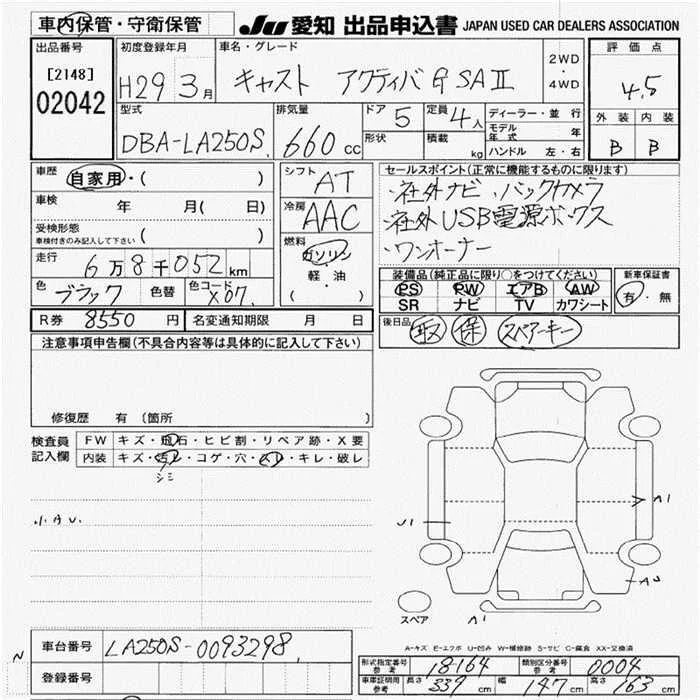 車内保管・守衛保管 JU 愛知 出品申込書 JAPAN USED CAR DEALERS ASSOCIATION
出品番号 [2148] 02042
初度登録年月 H29 3月
車名・グレード キャスト アクティバ G SA Ⅱ
2WD・4WD
評価点 4.5
外装 内装
B B
型式 DBA-LA250S
排気量 660 cc
ドア 5
定員 4人
形状 積載 kg
ディーラー・並行
モデル年式 年
ハンドル 左・右
車歴 自家用・( )
車検 年 月( 日)
受検形態 車検付きのみ記入して下さい ( )
走行 6万8千052km
色 ブラック 色替 色コード X07
シフト AT
冷房 AAC
燃料 ガソリン 軽・油 ( )
セールスポイント(正常に機能するものに限ります)
・社外ナビ、バックカメラ
・社外USB電源ボックス
・ワンオーナー
装備品(純正品に限り○をつけてください)
PS PW エアB AW
SR ナビ TV カワシート
新車保証書 有・無
R券 8550円 名変通知期限 月 日
後日品 取 保 スペアーキー
注意事項申告欄(不具合内容等は具体的に記入して下さい)
修復歴 有 〔箇所
検査員記入欄
FW キズ・飛石・ヒビ割・リペア跡・X要
内装 キズ・汚レ・コゲ・穴・スレ・キレ・破レ
シミ
小キU.
A1
U1
A1
スペア
A-キズ E-エクボ U-凹み W-補修跡 S-サビ C-腐食 XX-交換済
N
車台番号 LA250S-0093298
登録番号
形式指定番号 参考 18164 類別区分番号 参考 0004
車庫証明用 参考 長さ 339 cm 幅 147 cm 高さ 163 cm